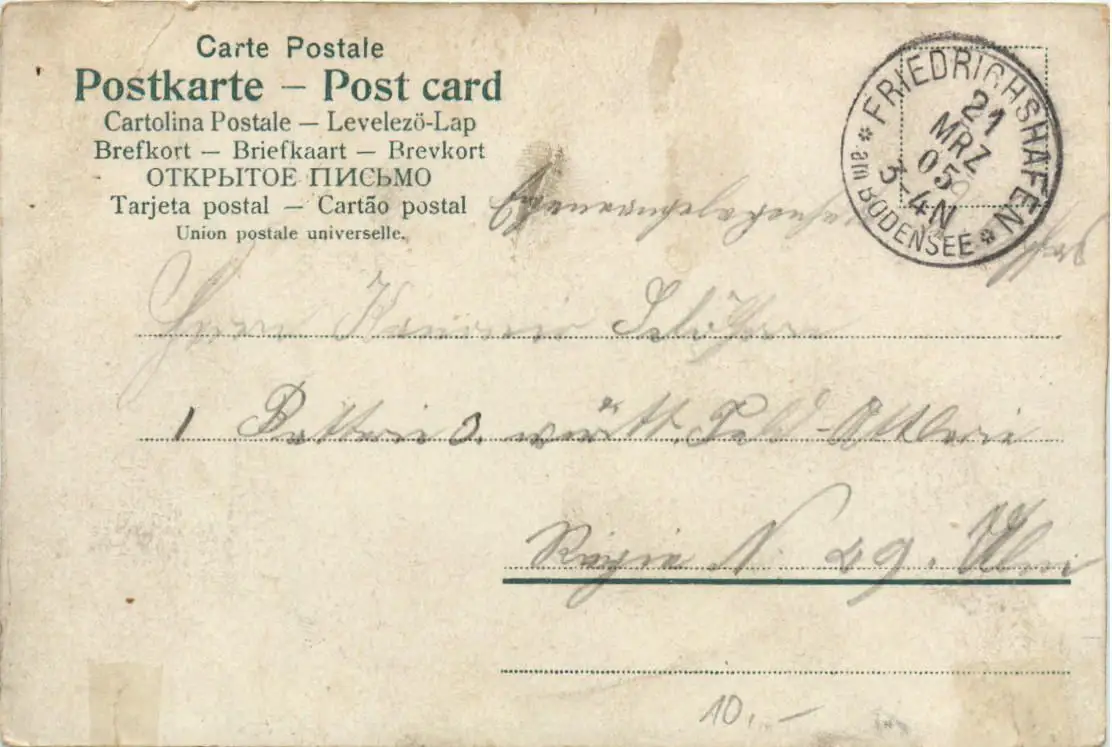 Carte Postale
Postkarte — Post card
Cartolina Postale — Levelezö-Lap
Brefkort — Briefkaart — Brevkort
ОТКРЫТОЕ ПИСЬМО
Tarjeta postal — Cartão postal
Union postale universelle.
* FRIEDRICHSHAFEN *
am BODENSEE
21
MRZ
05
3-4N
Herrn
1 württ. Feld-
N. 49. Ulm
10.—